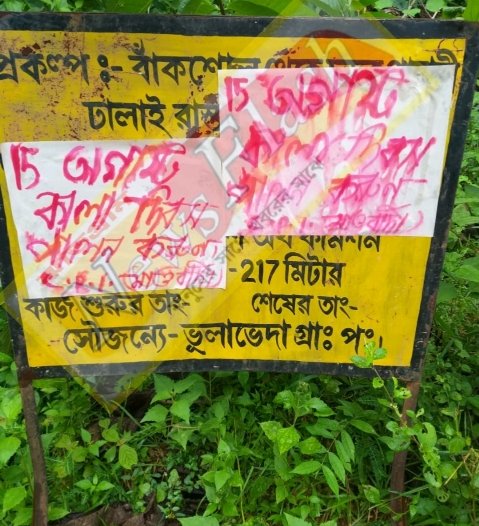 প্রকল্প ঃ- বাঁকশোল
ঢালাই রাস্তা
15 অগাস্ট
কালা দিবস
পালন করুণ
15 অগাস্ট
কালা দিবস
পালন করুণ-
অর্থ কমিশন
-217 মিটার
কাজ শুরুর তাং- শেষের তাং-
সৌজন্যে- ভুলাভেদা গ্রাঃ পং।